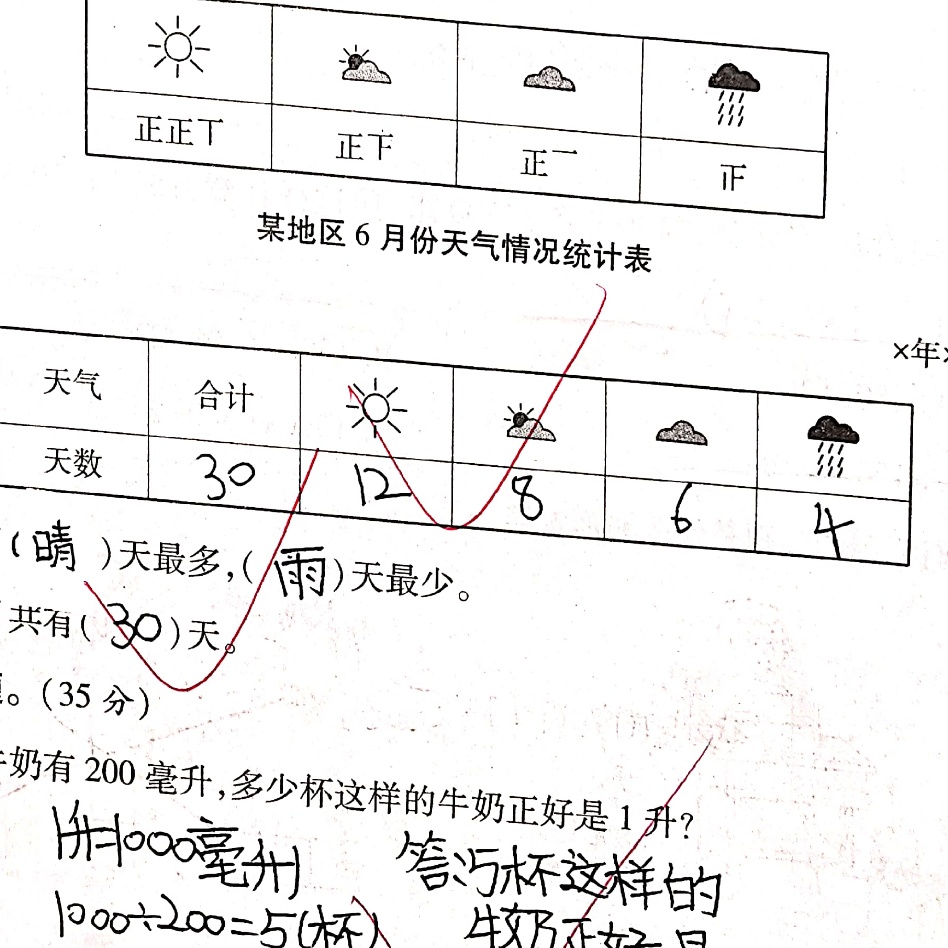 正正丅 正下 正一 正
某地区6月份天气情况统计表
×年×
天气 合计
天数 30 12 8 6 4
(晴)天最多,(雨)天最少。
共有(30)天。
。(35分)
牛奶有200毫升,多少杯这样的牛奶正好是1升?
1升=1000毫升 答:5杯这样的
1000÷200=5(杯) 牛奶正好是